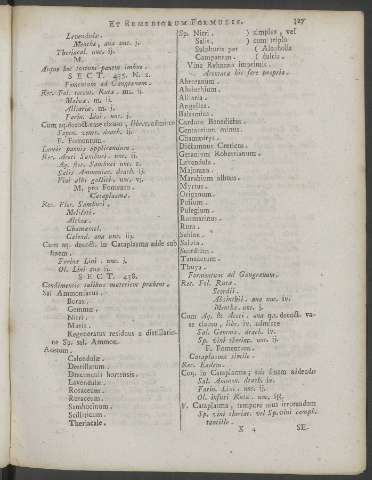 ET REMEDIORUM FORMULIS. 327
Lavendulæ.
Menthæ, ana unc. j.
Theriacal. unc. ij.
M.
Aqua hac tectoni panni imbue.
SECT. 435. N. 2.
Fomentum ad Gangrænam.
Rec. Fol. recent. Rutæ. m. ij.
Malvæ. m. ij.
Alliariæ. m. j.
Farin. Lini. unc. j.
Sapon. venet. drach. ij.
F. Fomentum.
Laneis pannis applicandum.
Rec. Aceti Sambuci. unc. ij.
Aq. flor. Sambuci unc. x.
Salis Ammoniac. drach. ij.
Vini albi gallici, unc. vj.
M. pro Fomento.
Cataplasma.
Rec. Flor. Sambuci.
Meliloti.
Altheæ.
Chamæmel.
Calend. ana unc. iij.
Cum aq. decoct. in Cataplasma adde sub
finem.
Farinæ Lini. unc. j.
Ol. Lini unc. ij.
SECT. 438.
Condimentis salibus materiem præbent.
Sal Ammoniacus.
Borax.
Gemmæ.
Nitri.
Maris.
Regeneratus residuus a distillatio-
ne Sp. sal. Ammon.
Acetum.
Calendulæ.
Destillatum.
Dracunculi hortensis.
Lavendulæ.
Rosaceum.
Rutaceum.
Sambucinum.
Scilliticum.
Theriacale.
Sp. Nitri. ) simplex, vel
Salis. ) cum triplo
Sulphuris per ( Alcoholis
Campanam. ( dulcis.
Vina Rhenana imprimis.
Aromata his fere propria.
Abrotanum.
Absinthium.
Alliaria.
Angelica.
Balsamina.
Carduus Benedictus.
Centaurium minus.
Chamædrys.
Dictamnus Creticus.
Geranium Robertianum.
Lavendula.
Majorana.
Marubium album.
Myrtus.
Origanum.
Polium.
Pulegium.
Rosmarinus.
Ruta.
Sabina.
Salvia.
Scordium.
Tanacetum.
Thuya.
Fomentum ad Gangrænam.
Rec. Fol. Rutæ.
Scordii.
Absinthii. ana unc. iv.
Menthæ unc. j.
Cum Aq. & Aceti. ana q.s. decoct. va-
se clauso, libr. iv. admisce
Sal. Gemmæ. drach. iv.
Sp. vini theriac. unc. ij.
F. Fomentum.
Cataplasma simile.
Rec. Eadem.
Coq. in Cataplasma; sub finem addendo
Sal. Ammon. drach. iv.
Farin. Lini. unc. ij.
Ol. infusi Rutæ. unc. iß.
F. Cataplasma, tempore usus irrorandum
Sp. vini theriac. vel Sp. vini campb.
tantillo.
X 4 SE.